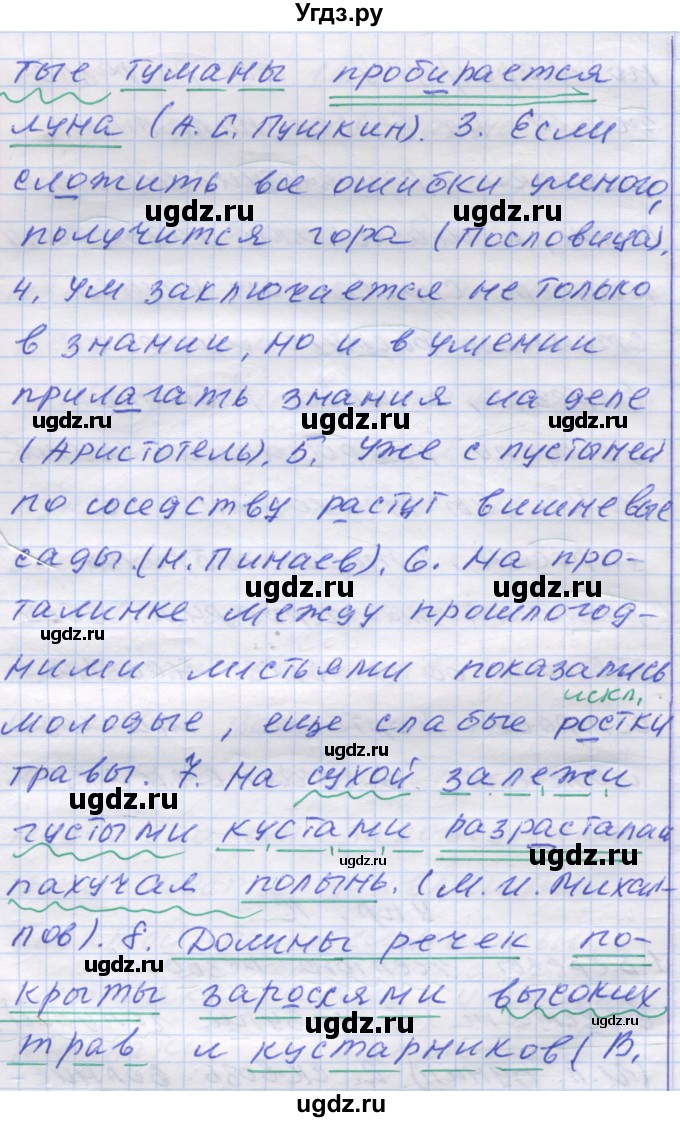 Угдз.ру
тые туманы пробирается
луна (А. С. Пушкин). 3. Если
сложить все ошибки умного,
ugdz.ru ugdz.ru
получится гора (Пословица).
4. Ум заключается не только
в знании, но и в умении
прилагать знания на деле
ugdz.ru ugdz.ru
(Аристотель). 5. Уже с пустыней
по соседству растут вишневые
сады. (Н. Пинаев). 6. На про-
ugdz.ru ugdz.ru
талинке между прошлогод-
ugdz.ru
ними листьями показались
искл.
молодые, еще слабые ростки
ugdz.ru
травы. 7. На сухой залежи
ugdz.ru
густыми кустами разрасталась
ugdz.ru
пахучая полынь. (М. И. Михай-
лов). 8. Долины речек по-
ugdz.ru
крыты зарослями высоких
ugdz.ru ugdz.ru
трав и кустарников (В.
ugdz.ru